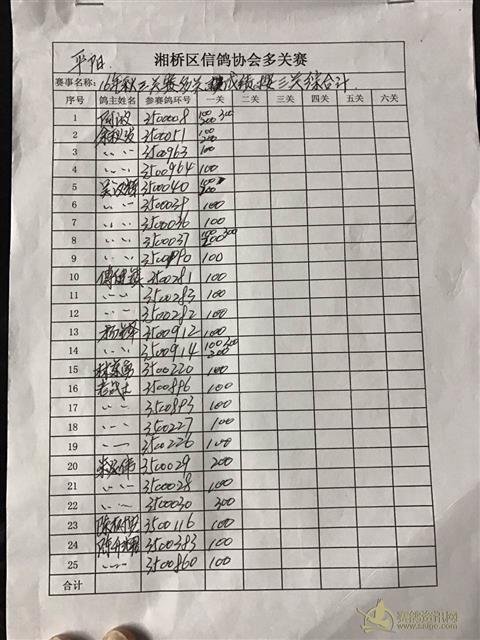 平阳
湘桥区信鸽协会多关赛
赛事名称: 16年秋三关赛多关 成绩 三关综合计
序号 鸽主姓名 参赛鸽环号 一关 二关 三关 四关 五关 六关
1 阿波 3500008 100 300 200
2 3500051 100 200
3 〃 〃 3500963 100
4 〃 〃 3500964 100
5 3500040 100 200
6 〃 〃 3500039 100
7 〃 〃 3500036 100
8 〃 〃 3500037 100 300 200
9 〃 〃 100
10 3500281 100
11 〃 〃 3500283 100
12 〃 〃 3500282 100
13 3500912 100
14 〃 〃 3500914 100 300 200
15 3500220 100
16 老战士 3500896 100
17 〃 〃 3500893 100
18 〃 〃 3500227 100
19 〃 〃 3500226 100
20 3500029 200
21 〃 〃 3500028 100
22 〃 〃 3500030 300
23 3500116 100
24 3500383 100
25 〃 〃 3500860 100
合计
赛鸽资讯网
www.saige.com